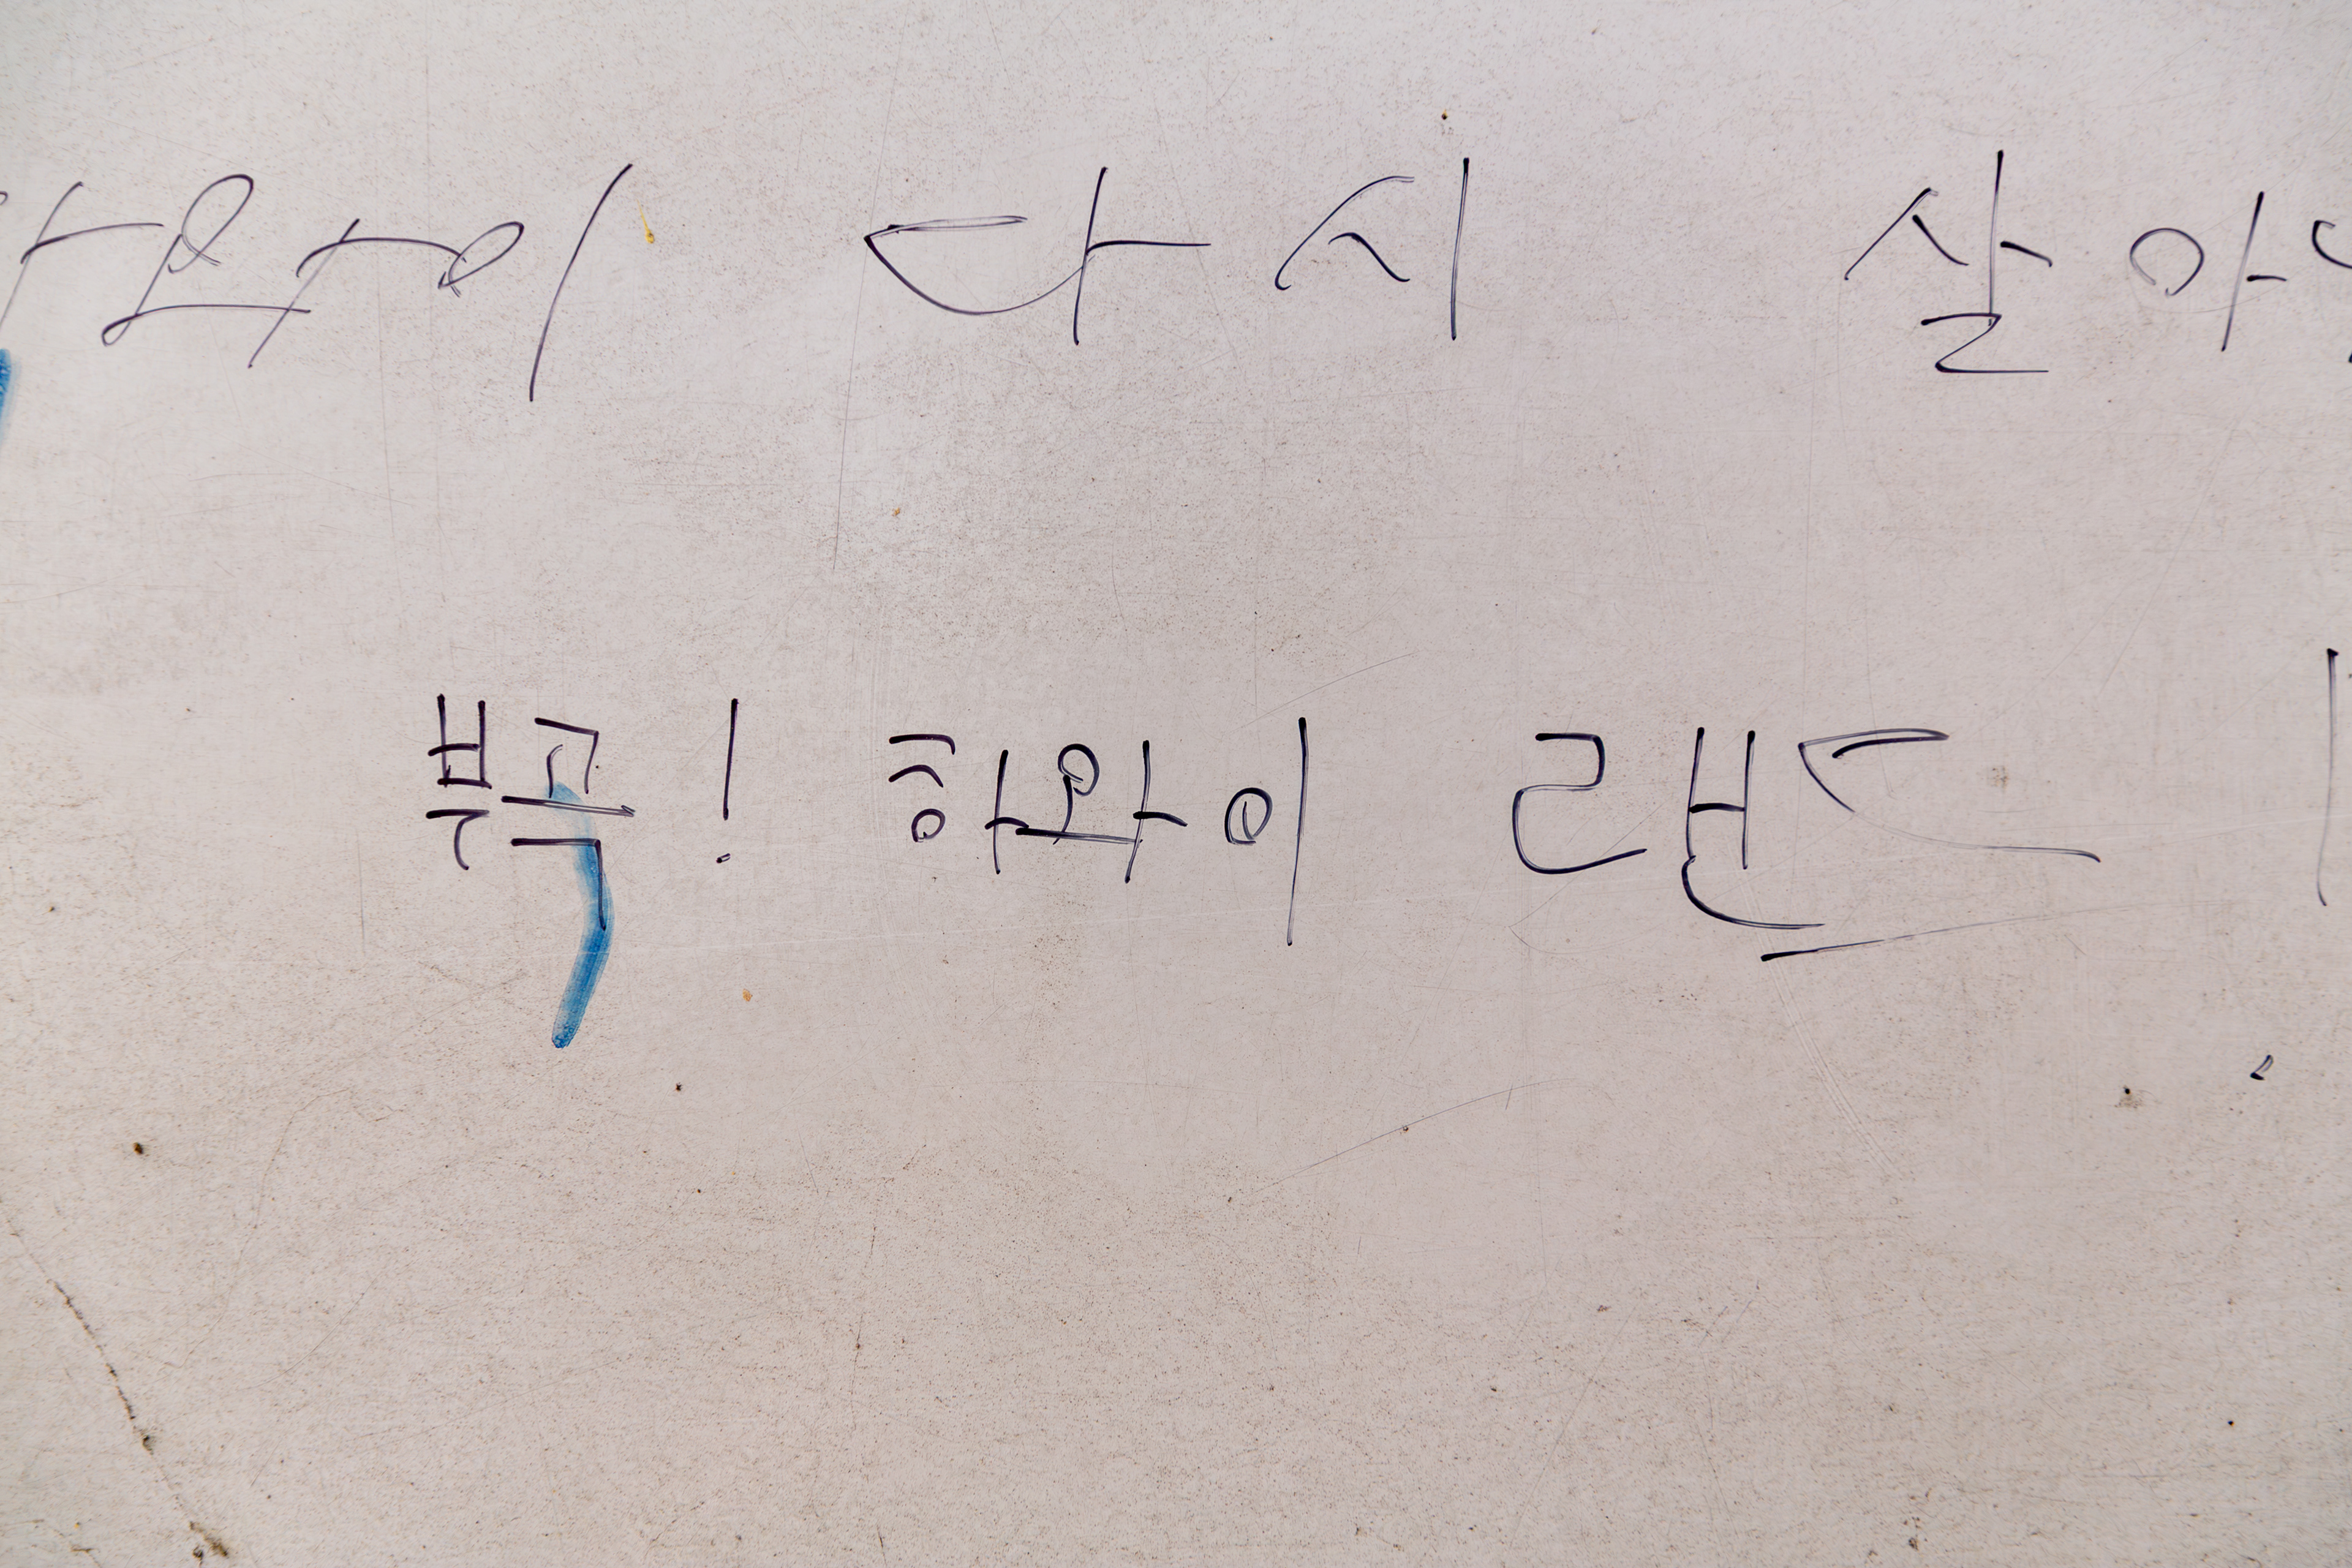 와이 다시 살아
부곡! 하와이 랜드